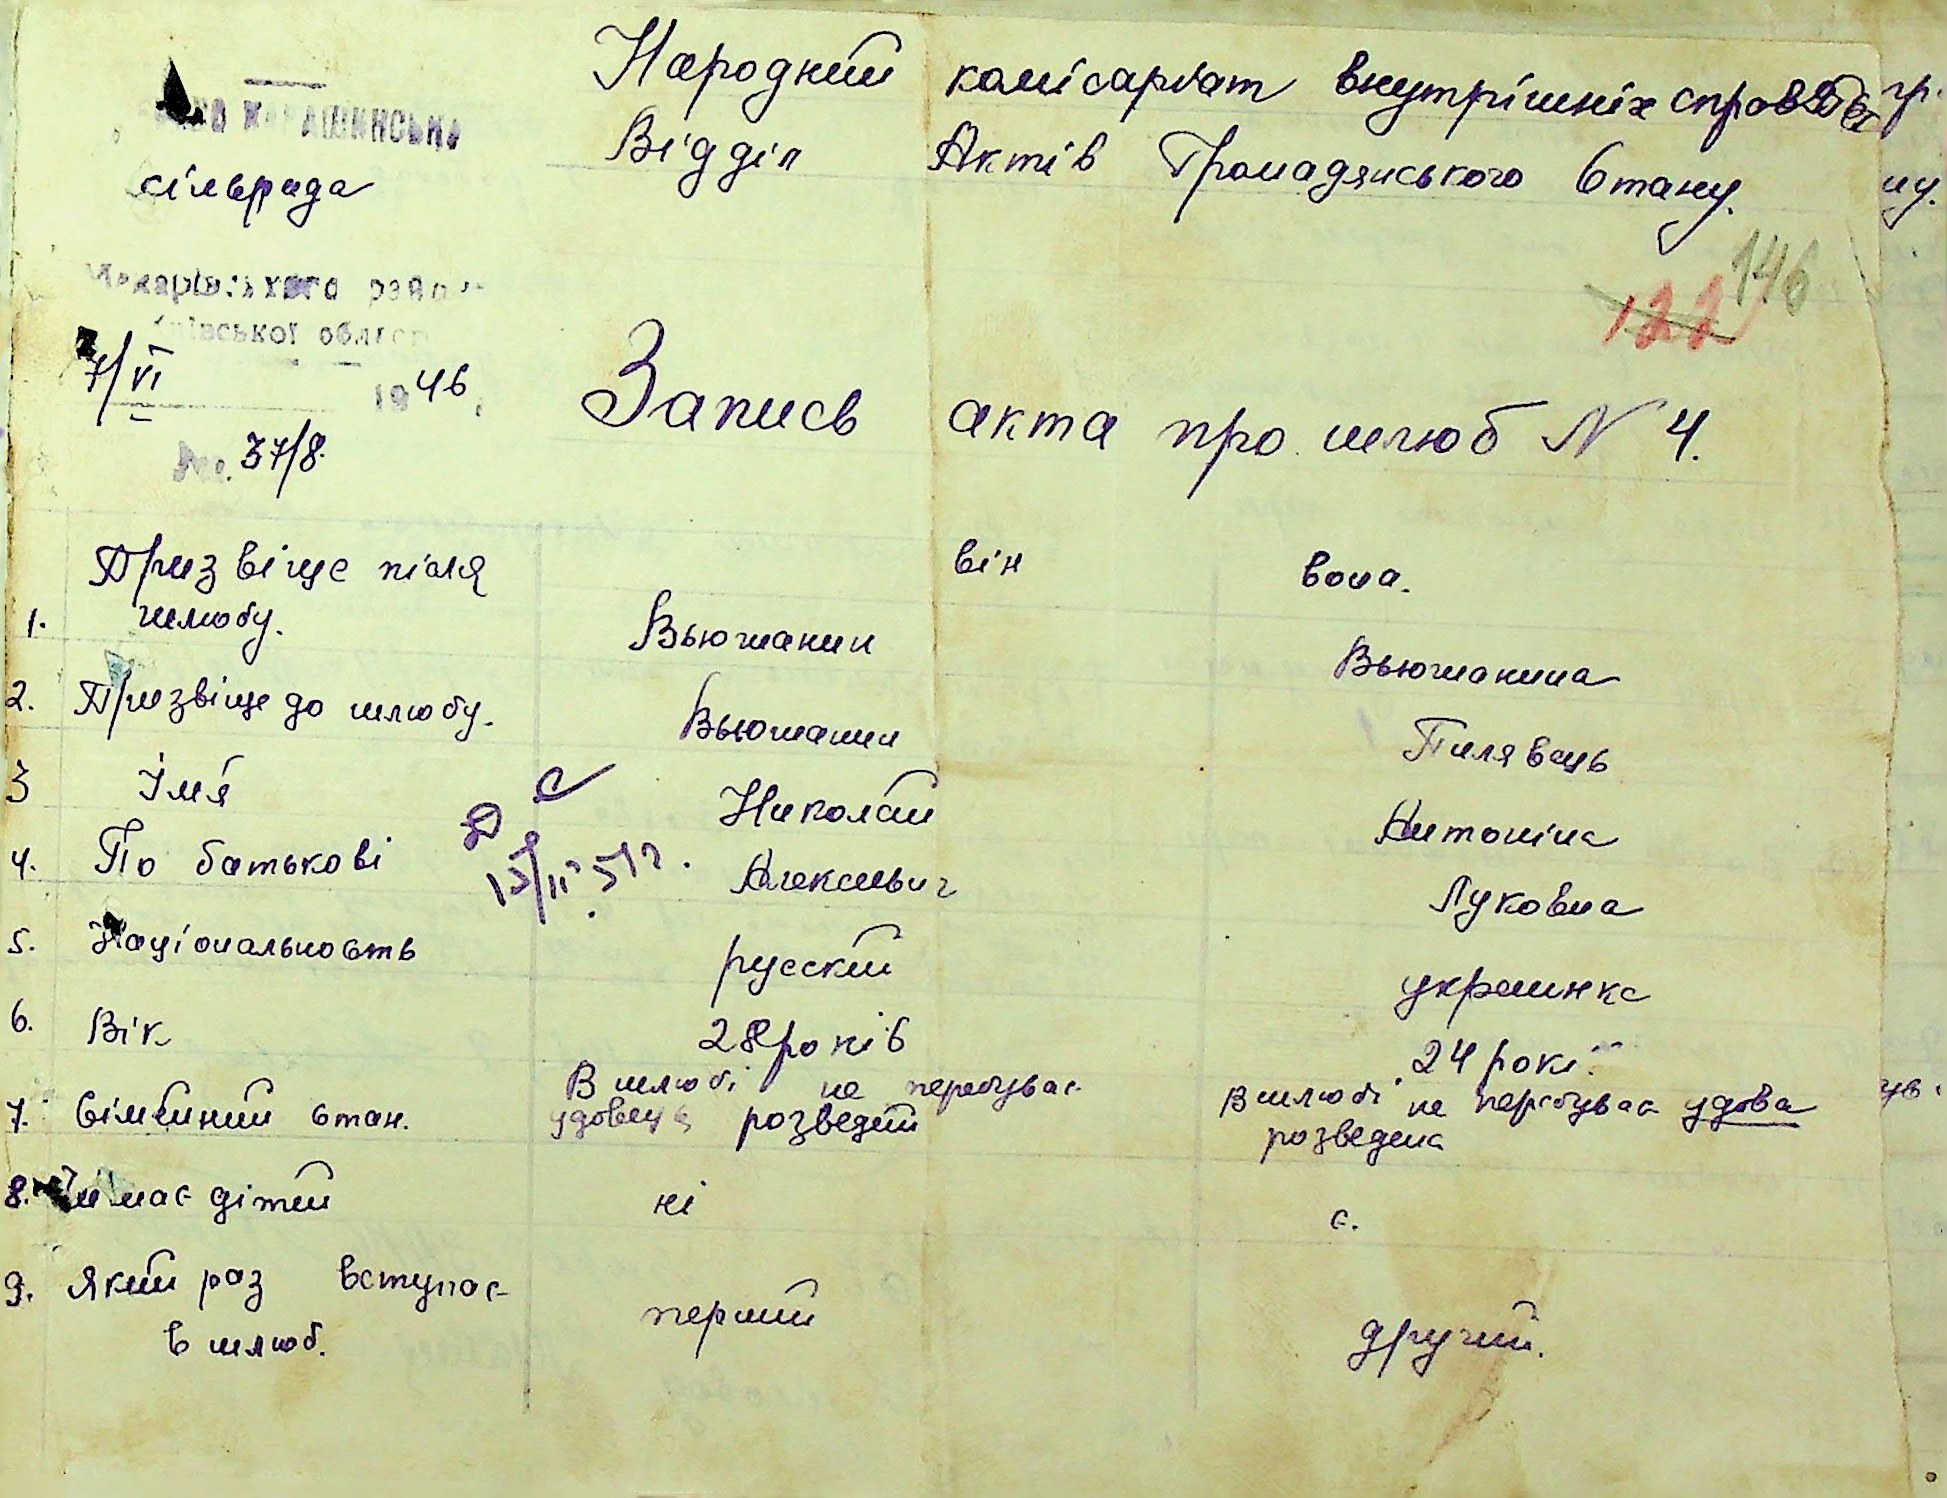 Народний комісаріат внутрішніх справ
Відділ Актів Громадянського Стану.
сільрада
Макарівського району
Київської області
7/VI 1946.
No. 37/8.
146
122
Запись акта про шлюб N 4.
він вона.
1. Призвіще після шлюбу. Вьюшанин Вьюшанина
2. Призвіще до шлюбу. Вьюшанин Пилявець
3 Імя Николай Антоніна
4. По батькові Алексеевич Луковна
15/II 51г.
5. Національность русский украинка
6. Вік 28 років 24 рокі.
7. Сімейний стан. В шлюбі не перебуває удовець розведений В шлюбі не перебуває удова розведена
8. Чи має дітей ні є.
9. Який раз вступає в шлюб. перший другий.